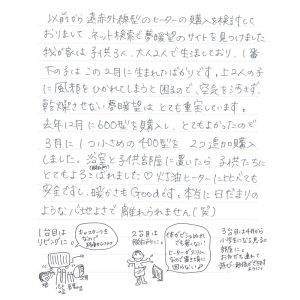 以前から遠赤外線型のヒーターの購入を検討して
おりまして、ネット検索で夢暖望のサイトを見つけました。
我が家は子供3人、大人2人で生活しており、1番
下の子はこの2月に生まれたばかりです。上2人の子
に風邪をひかれてしまうと困るので、空気を汚さず
乾燥させない夢暖望はとても重宝しています。
去年12月に600型を購入し、とてもよかったので
3月に1つ小さめの400型を2つ追加購入
しました。浴室と子供部屋に置いたら子供たちに
とてもよろこばれました♡灯油ヒーターに比べても
安全ですし、暖かさもGoodです。本当に日だまりの
ような心地よさで離れられません(笑)
1台目は
リビングに。
2台目は
脱衣所に。
3台目は4月から
小学生になる兄の
部屋に。